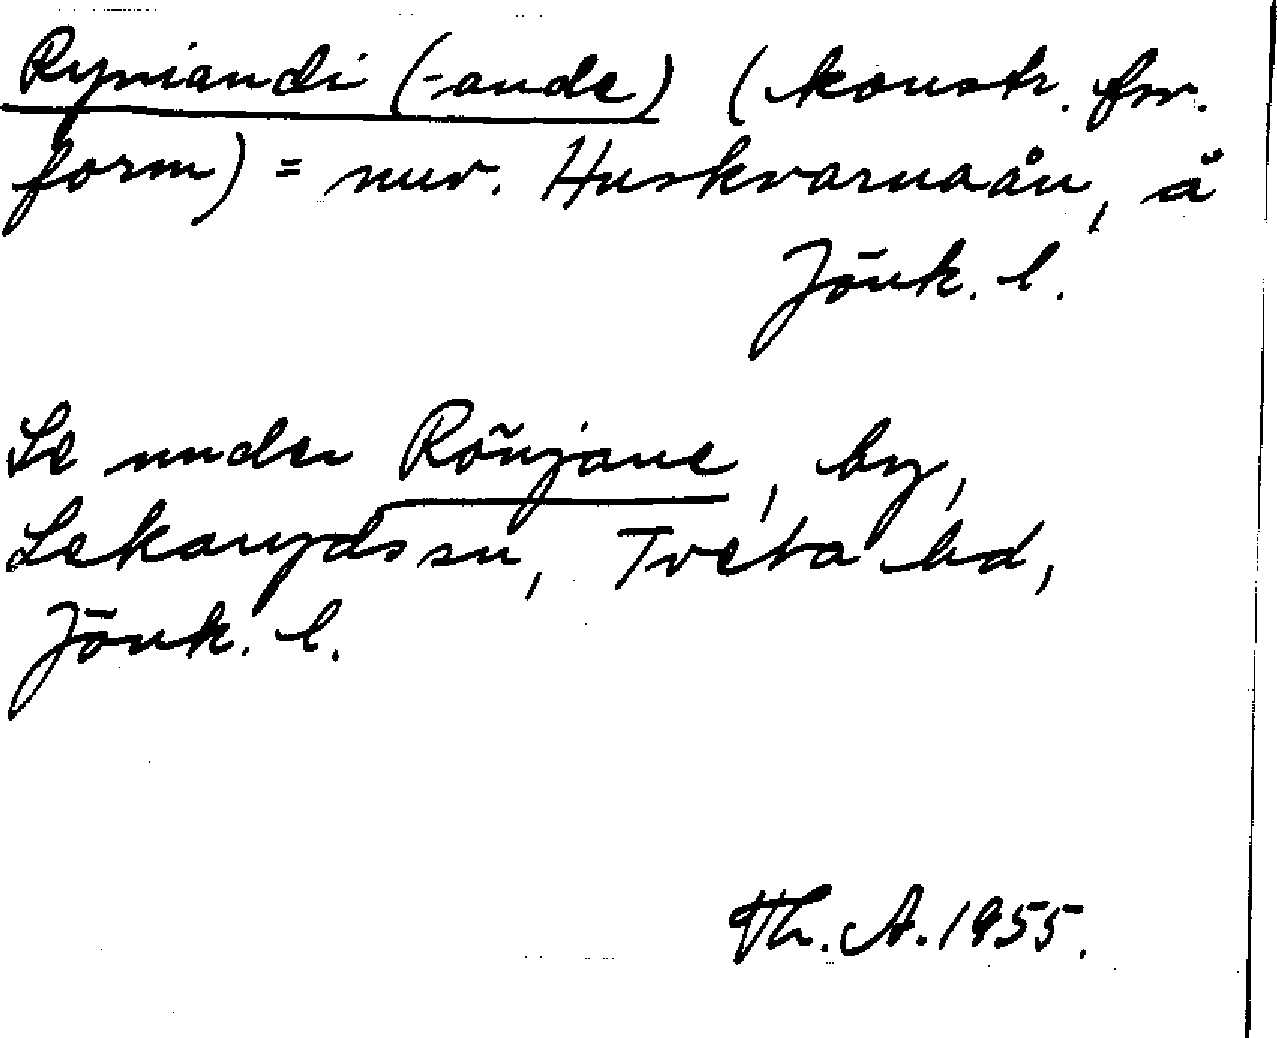 Ryniandi (-ande) (konstr. fsv.
form) = nuv. Huskvarnaån, å
Jönk. l.
Se under Rönjane, by,
Lekarydssn, Tveta hd,
Jönk. l.
Th. A. 1955.